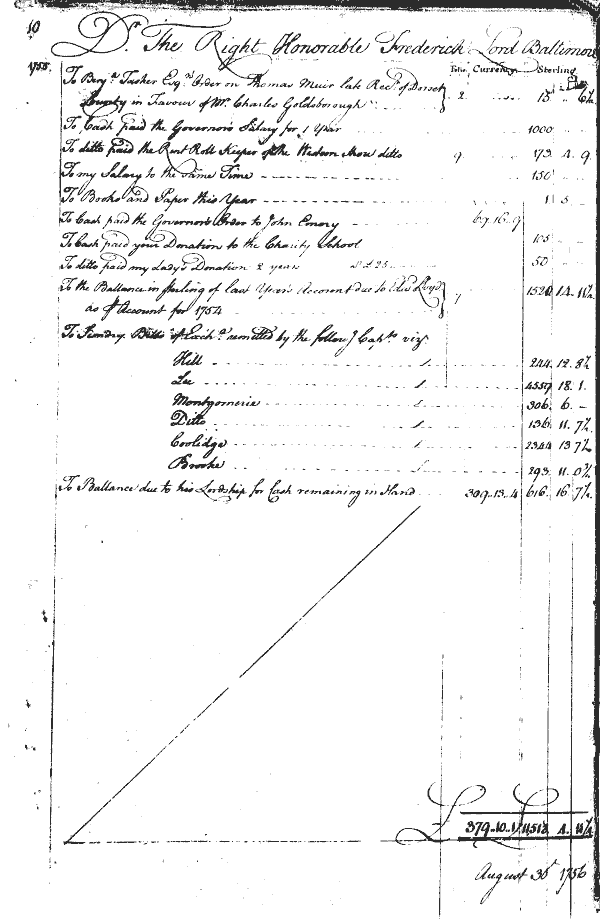 10
Dr. The Right Honorable Frederick Lord Baltimore
1755. Folio. Currency. Sterling
To Benja. Tasker Esqrs. Order on Thomas Muir late Recr. of Dorset
County in Favour of Mr. Charles Goldsborough 2 15 .. 6½
To Cash paid the Governors Salary for 1 Year 1000
To ditto paid the Rent Roll Keeper of the Western Shore ditto 9 173. 4. 9
To my Salary to the same Time 150
To Books and Paper this Year 1 5
To Cash paid the Governors Order to John Emory 69.16.9
To Cash paid your Donation to the Charity School 105
To ditto paid my Ladys Donation 2 years @ £25 50
To the Ballance in sterling of last Years Account due to
as Account for 1754 7 1520 14. 11½
To Sundry Bills of Excha. remitted by the follow.g Captns. vizt.
Hill 244 12. 8½
Lee 4557 18. 1
Montgomerie 306. 6. -
Ditto 136. 11. 7½
Coolidge 2344 13 7½
Brooke 293. 11. 0½
To Ballance due to his Lordship for Cash remaining in Hand 309.13.4 616. 16 7½
£ 379.10.1 £11512 4. 11½
August 30 1756